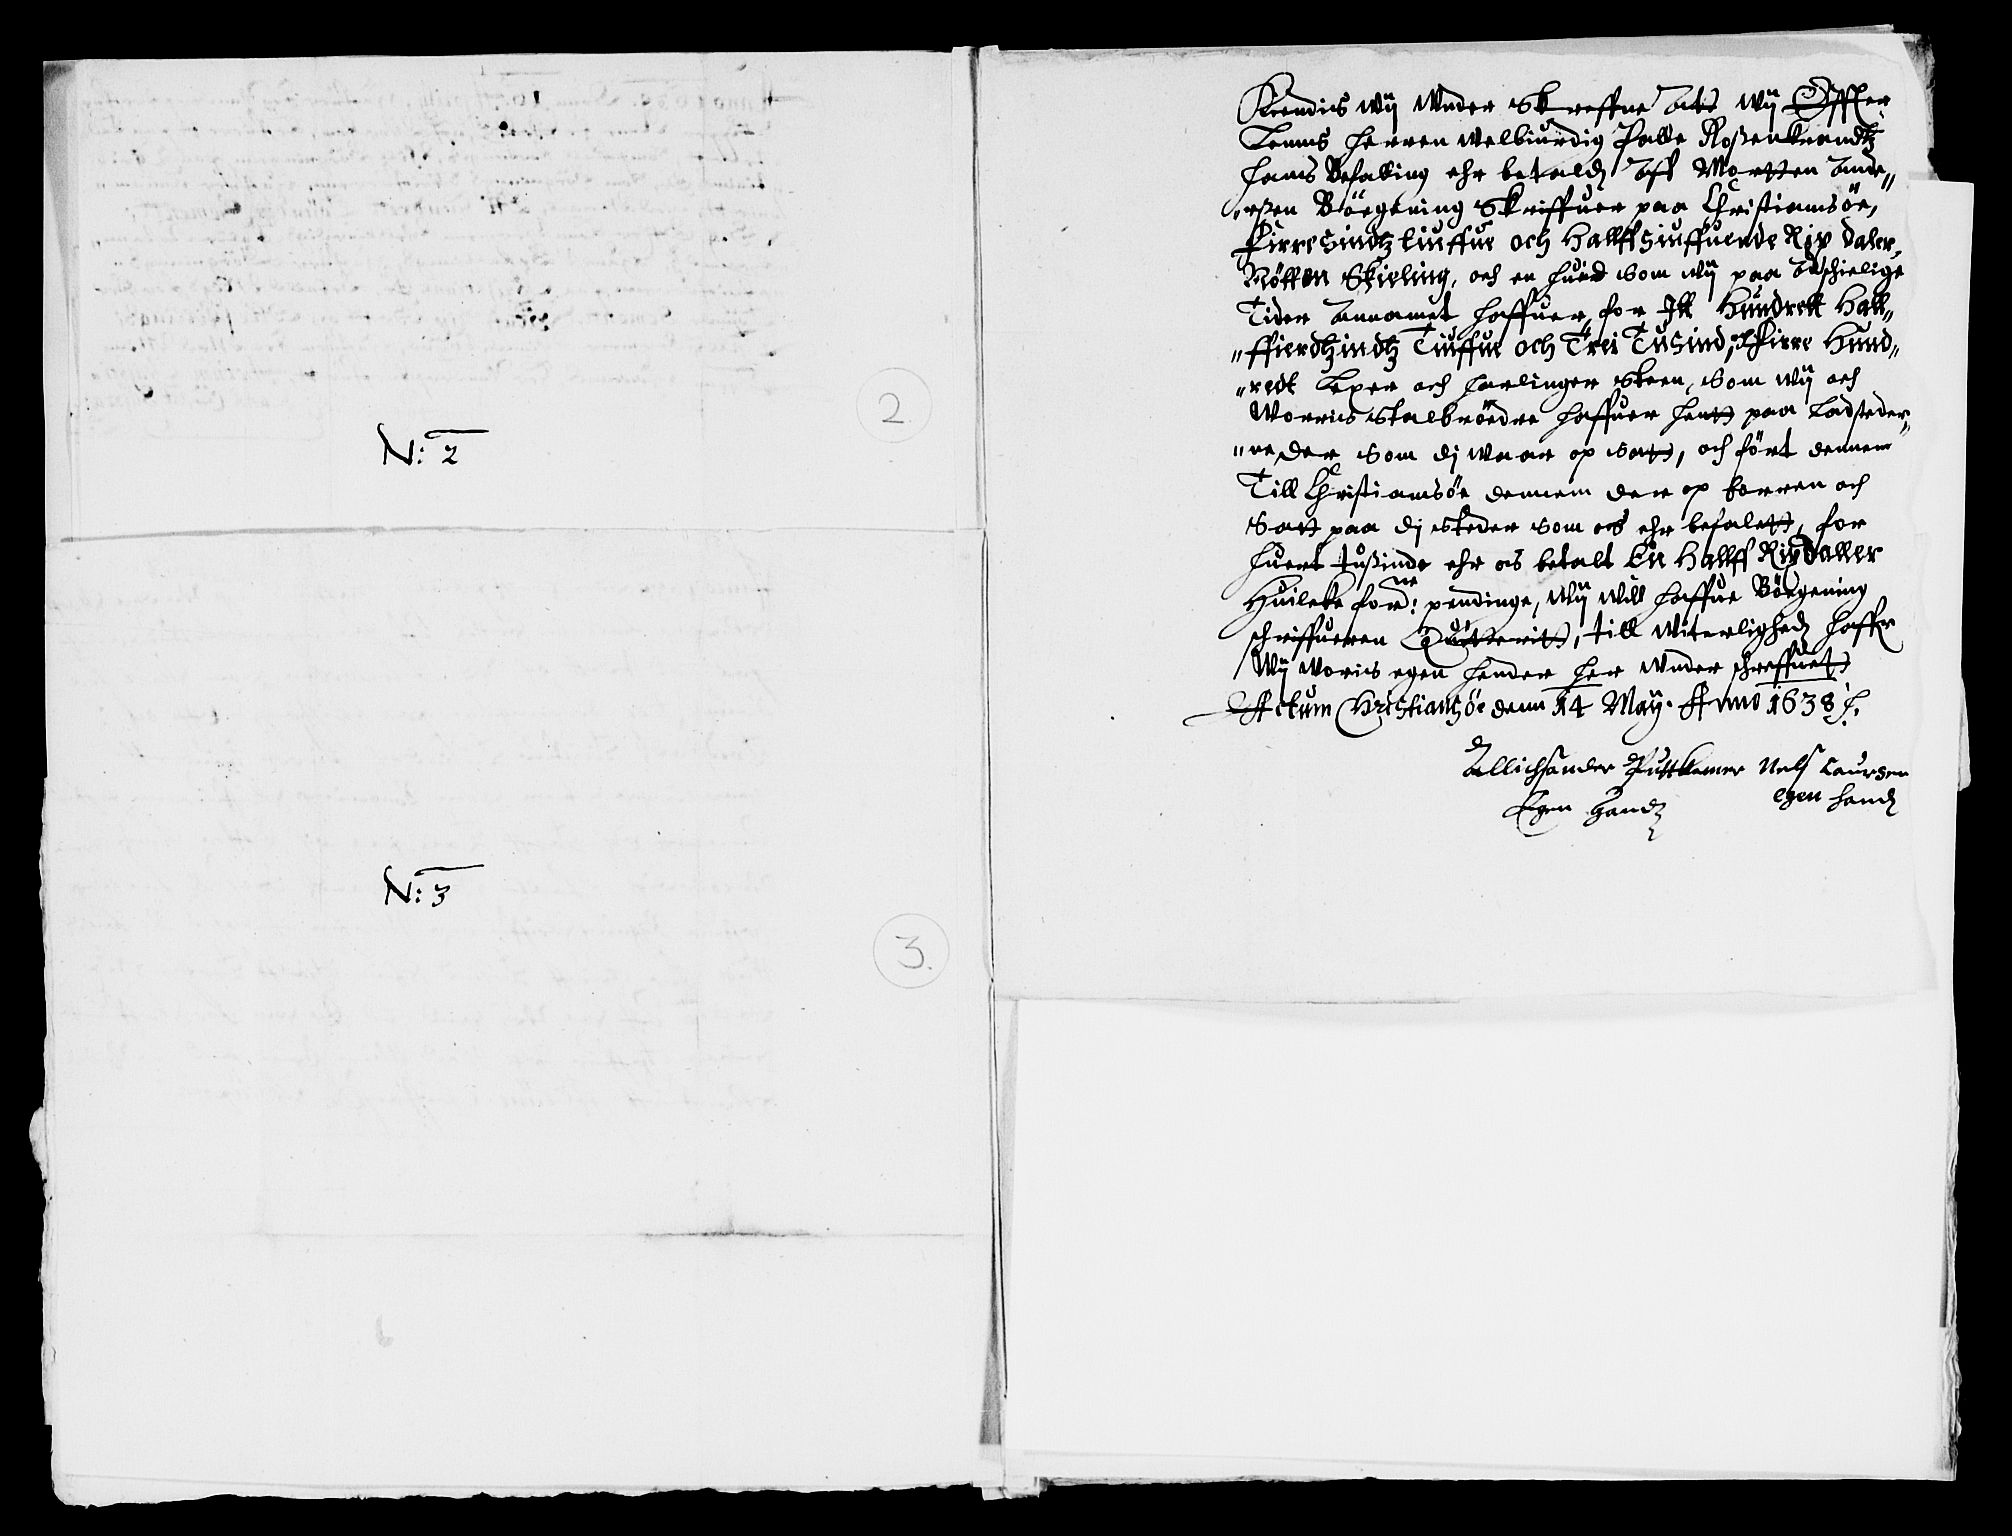 N: 2
2
N: 3
3.
Kiendis wij Under Skreffne Att wij Effter
Lenns herren welbiurdig Palle Rosenkrandtz
hans Befalling ehr betald Aff Mortten Ande„
„rsen Böegening Skriffuer paa Christiansöe,
Firresindtz tiuffue och Hallff siuffuende Rix daler,
Nötten Skieling, och en huid som wij paa Adschielige
Tider Annamet haffuer, for Itt Hundrett Hall„
„ffierdtzindtz Tiuffue och Trei Tusind, Firre Hund„
„redt Lexer och harlinger steen, som wij och
Worris stalbrödre haffuer hentt paa Ladsteder„
„ne, der som dj waar op satt, och fört dennem
Till Christiansöe dennem der op borren och
Satt paa dj steder som os ehr befalett, for
huert tusinde ehr os betalt En Hallff Rixdaller
Huileke forne: pendinge, Wij will haffue Böegening
schriffueren Quitterit, till witerlighed haffr
Wij woris egen hender her under schreffuet
Actum Christiansöe denn 14 Maij. Anno 1638
Allichsander Puttkamer Nels Laursen
Egen Handt egen hand